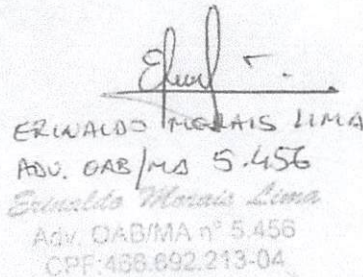 ERINALDO MORAIS LIMA
ADV. OAB/MA 5.456
Erinaldo Morais Lima
Adv. OAB/MA nº 5.456
CPF:466.692.213-04